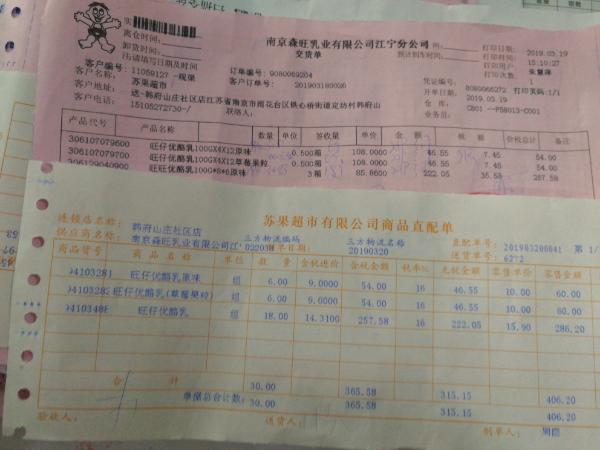 南京森旺乳业有限公司江宁分公司
交货单
离仓时间:
卸货时间:
打印日期: 2019.03.19
打印时间: 15:10:27
打印次数: 1
客户编号: 11059127
订单编号: 9080069204
凭证编号: 8089066272
打印页码:1/1
客户名称: 苏果超市
客户订单号: 201903180026
开单日期: 2019.03.19
送-韩府山庄社区店江苏省南京市雨花台区铁心桥街道定坊村韩府山
仓 库: C801
客户电话: 15105272730-/
联系人:
业务员:
产品代号 产品名称 数量 单位 签收量 单价 金额 税额 价税总计 备注
306107079600 旺仔优酪乳100GX4X12原味 0.500箱 108.0000 46.55 7.45 54.00
306107079700 旺仔优酪乳100GX4X12草莓果粒 0.500箱 108.0000 46.55 7.45 54.00
306129040900 旺仔优酪乳100G*8*6原味 3箱 85.8600 222.05 35.53 257.58
苏果超市有限公司商品直配单
连锁店名称: 韩府山庄社区店
三方物流编码
三方物流名称
直配单号: 201903200641 第 1/
供应商名称: 南京森旺乳业有限公司江
20190320
送货单号: 6272
商品货号 商品名称 单位 数量 含税进价 含税金额 税率% 无税金额 零售单价 零售金额
旺仔优酪乳原味 组 6.00 9.0000 54.00 16 46.55 10.00 60.00
旺仔优酪乳(草莓果粒) 组 6.00 9.0000 54.00 16 46.55 10.00 60.00
旺仔优酪乳 组 18.00 14.3100 257.58 16 222.05 15.90 286.20
合 计 30.00 365.58 315.15 406.20
单据总合计数: 30.00 365.58 315.15 406.20
验收人: 送货人: 制单人: